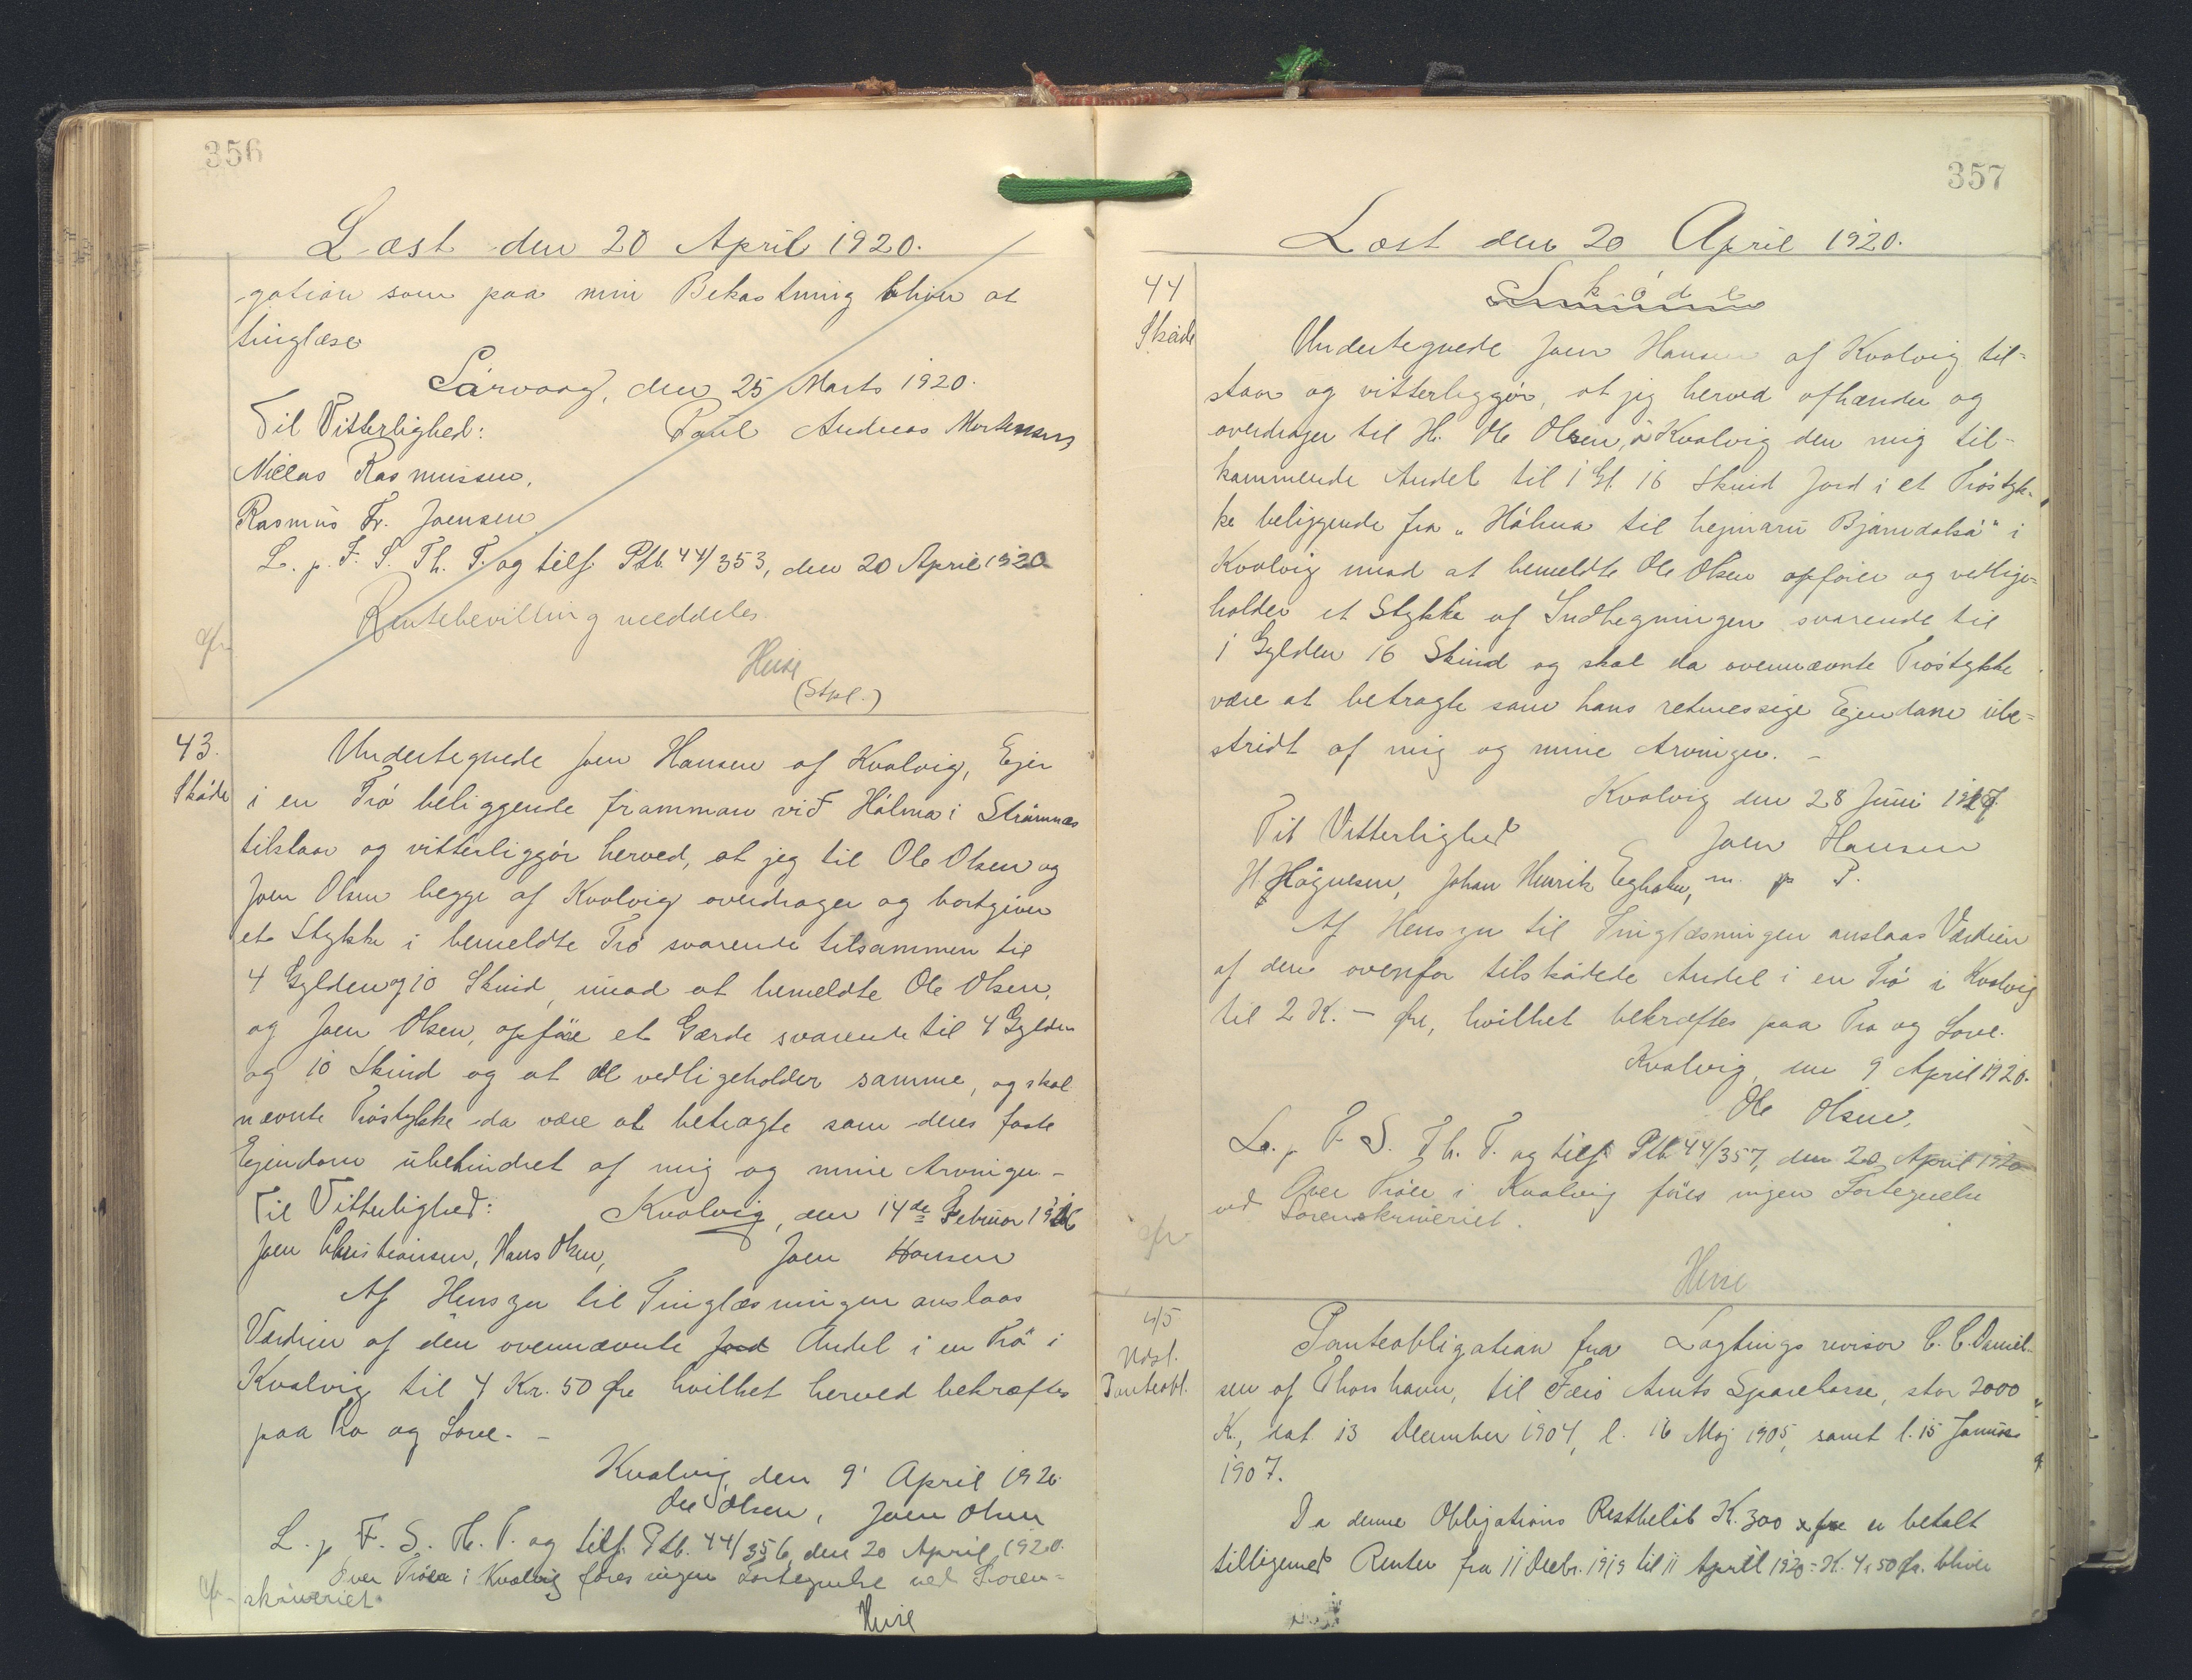 356
Læst den 20 April 1920.
gation som paa min Bekostning bliver at
tinglæse
Sørvaag, den 25 Marts 1920.
Til Vitterlighed: Poul Andreas Mortensen
Niclas Rasmussen,
Rasmus Fr. Joensen
L. p. F. S. Th. T. og tilf. Ptb. 44/353, den 20 April 1920
Rentebevilling meddeles
cfr
Heise
(Stpl.)
43.
Skøde
Undertegnede Joen Hansen af Kvalvig, Ejer
i en Trø beliggende framman við Hólma i Strømnæs
tilstaar og vitterliggör herved, at jeg til Ole Olsen og
Joen Olsen begge af Kvalvig overdrager og bortgiver
et Stykke i bemeldte Trø svarende tilsammen til
4 Gylden og 10 Skind, imod at bemeldte Ole Olsen,
og Joen Olsen, opføre et Gærde svarende til 4 Gylden
og 10 Skind og at de vedligeholder samme, og skal
nævnte Trøstykke da være at betragte som deres faste
Ejendom ubehindret af mig og mine Arvinger -
Til Vitterlighed: Kvalvig, den 14de Februar 1916
Joen Christiansen, Hans Olsen, Joen Hansen
Af Hensyn til Tinglæsningen anslaas
Værdien af den ovennævnte Jord Andel i en Trø i
Kvalvig til 4 Kr. 50 Øre hvilket herved bekræftes
paa Tro og Love. -
Kvalvig, den 9' April 1920
Ole Olsen, Joen Olsen
L. p. F. S. Th. T. og tilf. Ptb. 44/356, den 20 April 1920.
Over Trøer i Kvalvig føres ingen Fortegnelse ved Soren-
cfr. skriveriet.
Heise
357
Læst den 20 April 1920.
44
Skøde
Skøde
Undertegnede Joen Hansen af Kvalvig til-
staar og vitterliggör, at jeg herved afhænder og
overdrager til H. Ole Olsen, i Kvalvig den mig til-
kommende Andel til 1 Gl. 16 Skind Jord i et Trøstyk-
ke beliggende fra „Hólma til hejmaru Bjarndalsá" i
Kvalvig imod at bemeldte Ole Olsen opfører og vedlige-
holder et Stykke af Indhegningen svarende til
1 Gylden 16 Skind og skal da ovennævnte Trøstykke
være at betragte som hans retmessige Ejendom ube-
stridt af mig og mine Arvinger. -
Kvalvig den 28 Juni 1917.
Til Vitterlighed Joen Hansen
H Høgnesen, Johan Henrik Egholm, m. p P.
Af Hensyn til Tinglæsningen anslaas Værdien
af den ovenfor tilskødede Andel i en Trø i Kvalvig
til 2 K. - Øre, hvilket bekræftes paa Tro og Love.
Kvalvig, den 9 April 1920.
Ole Olsen,
L. p. F. S. Th. T. og tilf. Ptb 44/357, den 20 April 1920
Over Trøer i Kvalvig føres ingen Fortegnelse
ved Sorenskriveriet.
cfr
Heise
45
Udsl.
Panteobl.
Panteobligation fra Lagtingsrevisor C. C. Daniel-
sen af Thorshavn, til Færø Amts Sparekasse, stor 2000
K., dat 13 December 1904, l. 16 Maj 1905, samt l. 15 Januar
1907.
Da denne Obligations Restbeløb K. 300 er betalt
tilligemed Renter fra 11 Decbr. 1919 til 11 April 1920 = K. 4, 50 Ør. bliver